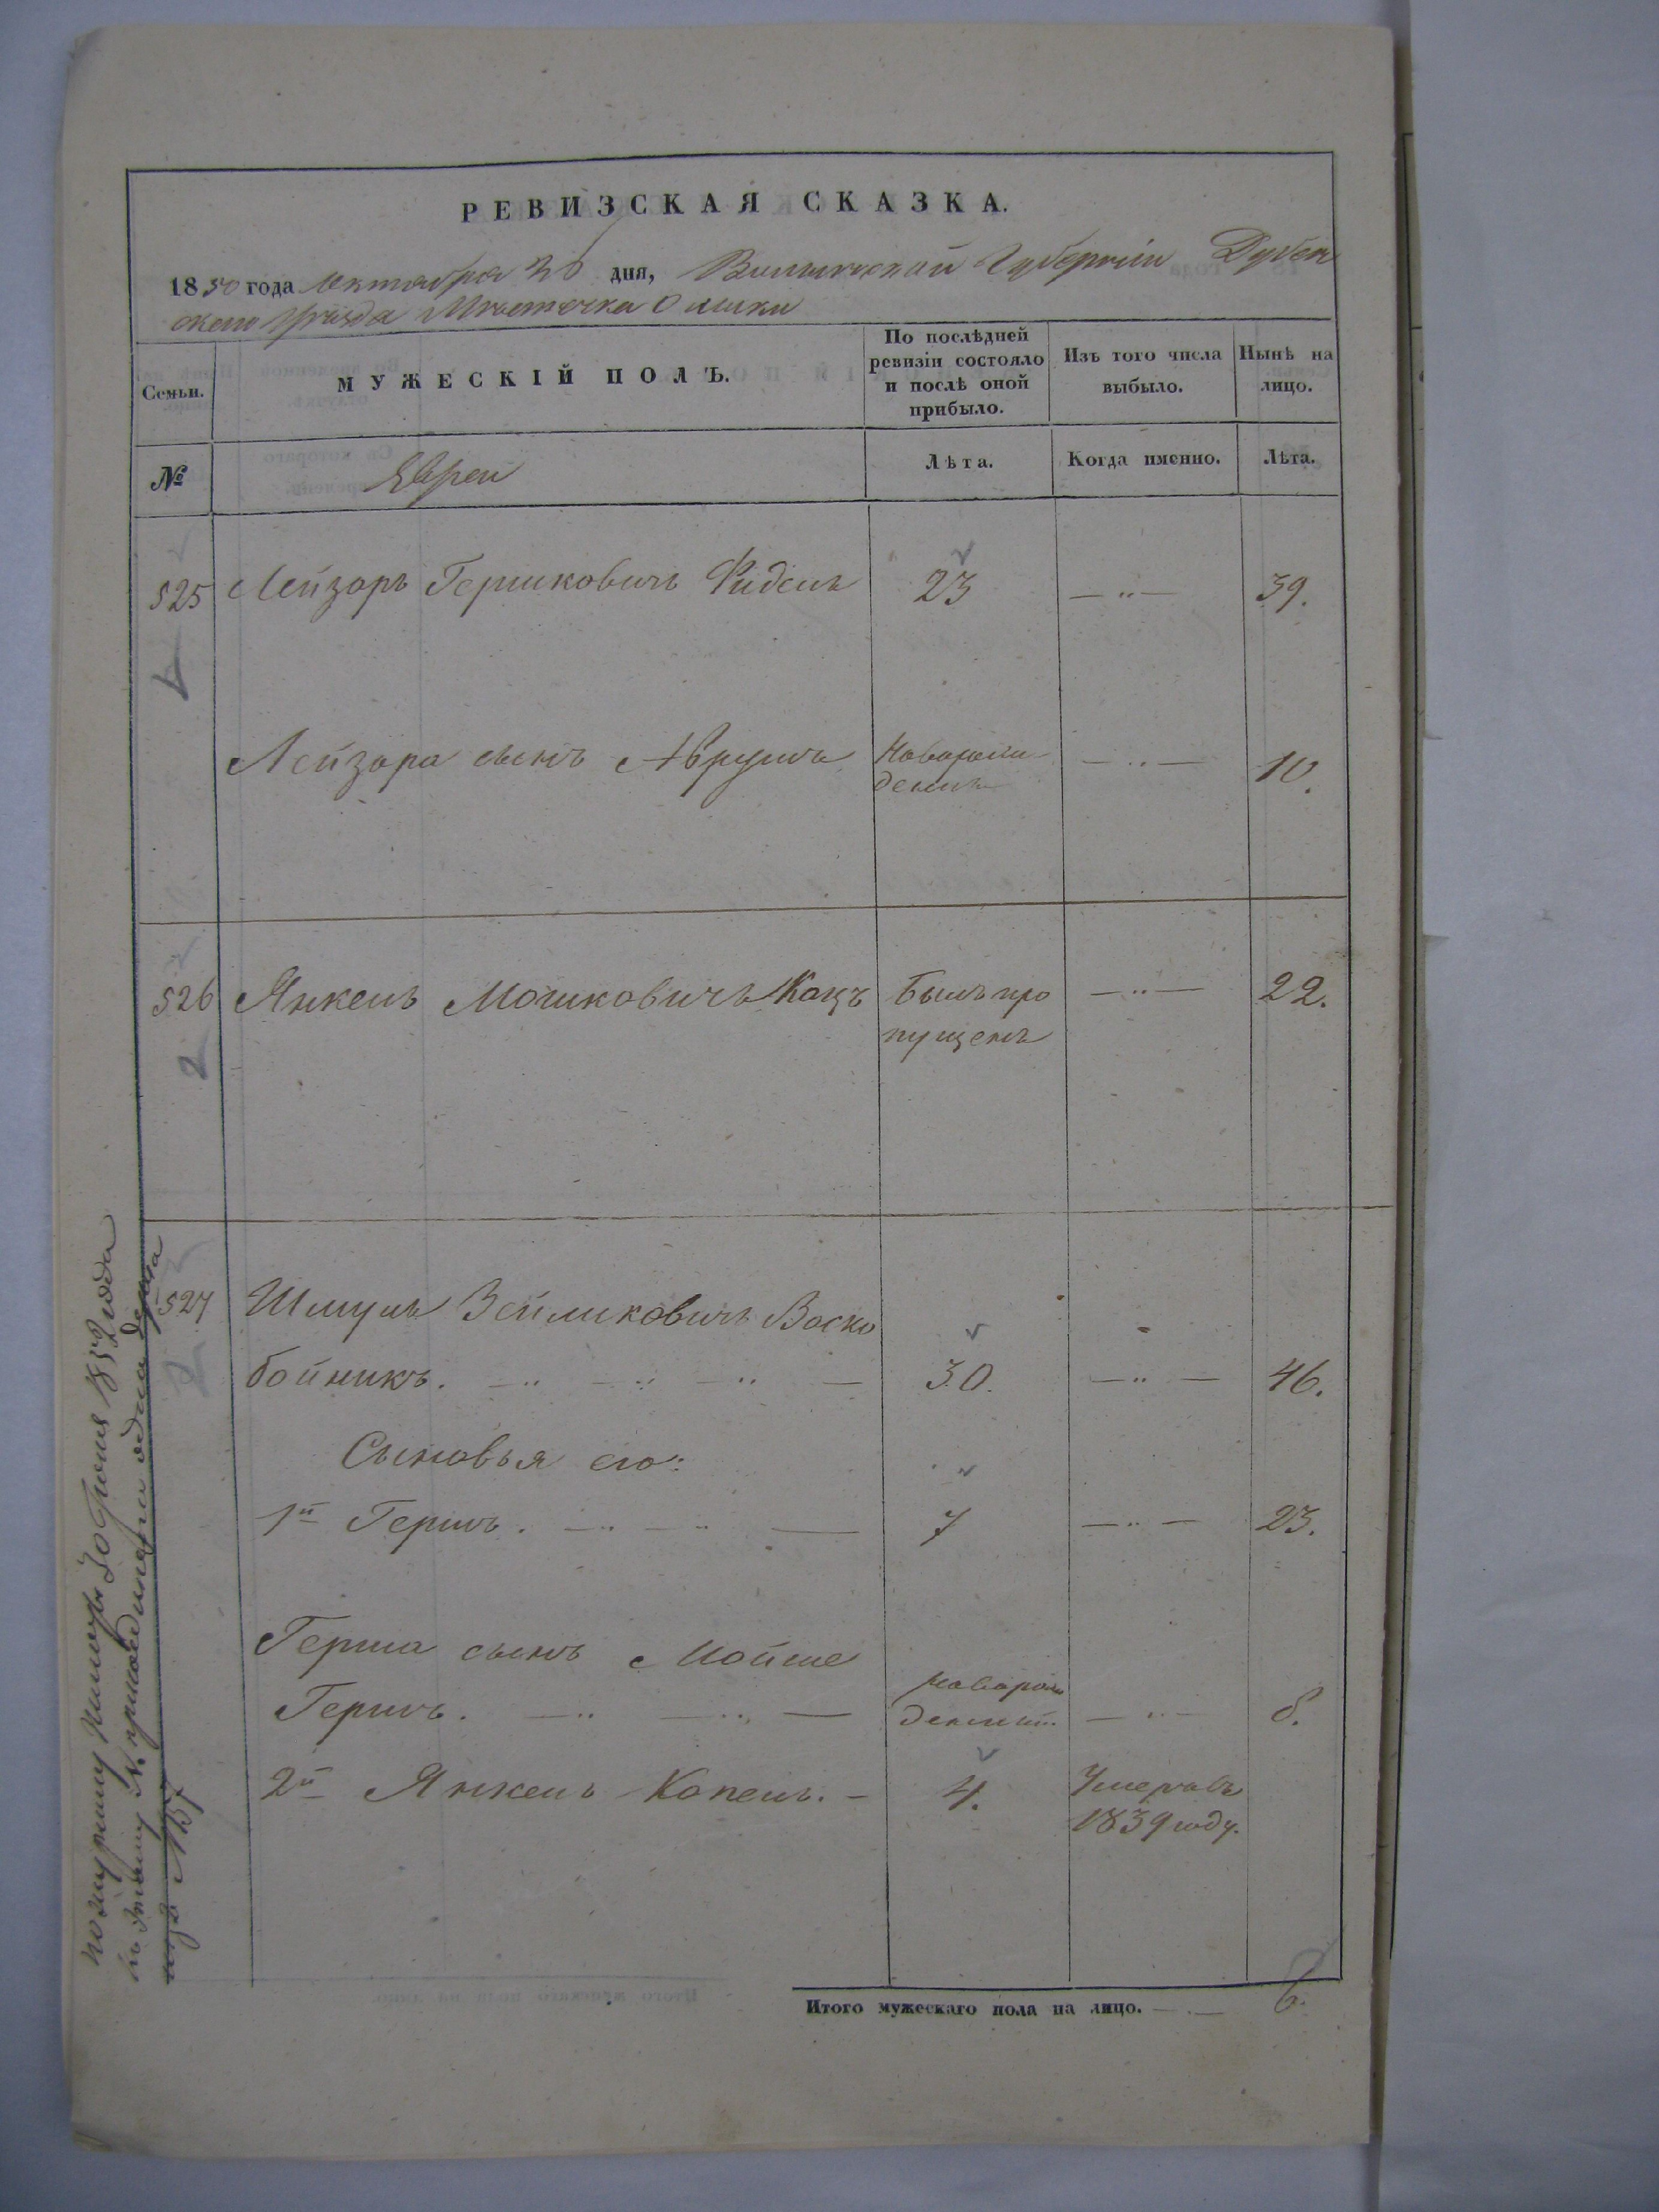 РЕВИЗСКАЯ СКАЗКА.
1850 года Октября 26 дня, Волынской Губерніи Дубен
скаго Уѣзда Мѣстечка Олыки
Семьи.
МУЖЕСКІЙ ПОЛЪ.
По послѣдней ревизіи состояло и послѣ оной прибыло.
Изъ того числа выбыло.
Нынѣ на лицо.
№
Евреи
Лѣта.
Когда именно.
Лѣта.
525 Лейзоръ Гершковичъ Фидель 23 — „ — 39.
1
Лейзора сынъ Аврумъ Новорож — „ — 10.
денъ
526 Янкель Мошковичъ Кацъ Былъ про — „ — 22.
пущенъ
2
527 Шмуль Зейликовичъ Воско
бойникъ. — „ — „ — „ — 30. — „ — 46.
2
Сыновья его:
1й Гершъ. — „ — „ — 7 — „ — 23.
Герша сынъ Мойше
Гершъ. — „ — „ — новорож
денный. — „ — 8.
2й Янкель Копель. — 4. Умеръ въ
1839 году.
Итого мужескаго пола на лицо. — „ — 6.
30 Іюня 1852 года
къ этому № присоединена одна душа
изъ №